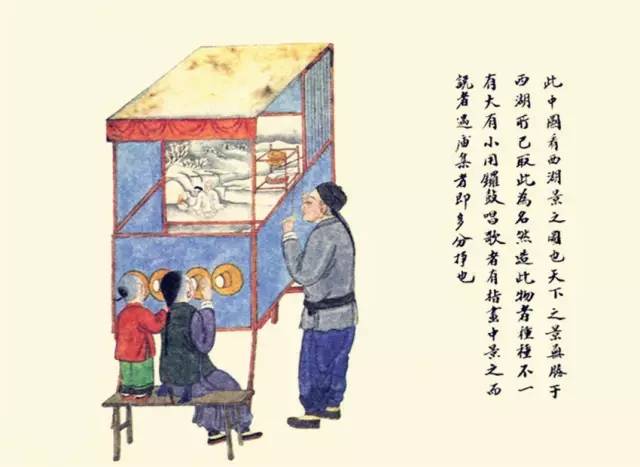 此中國看西湖景之圖也天下之景無勝于
西湖所已取此為名然造此物者種種不一
有大有小用鑼鼓唱歌者有指畫中景之而
説者遇廟集者即多分掙也